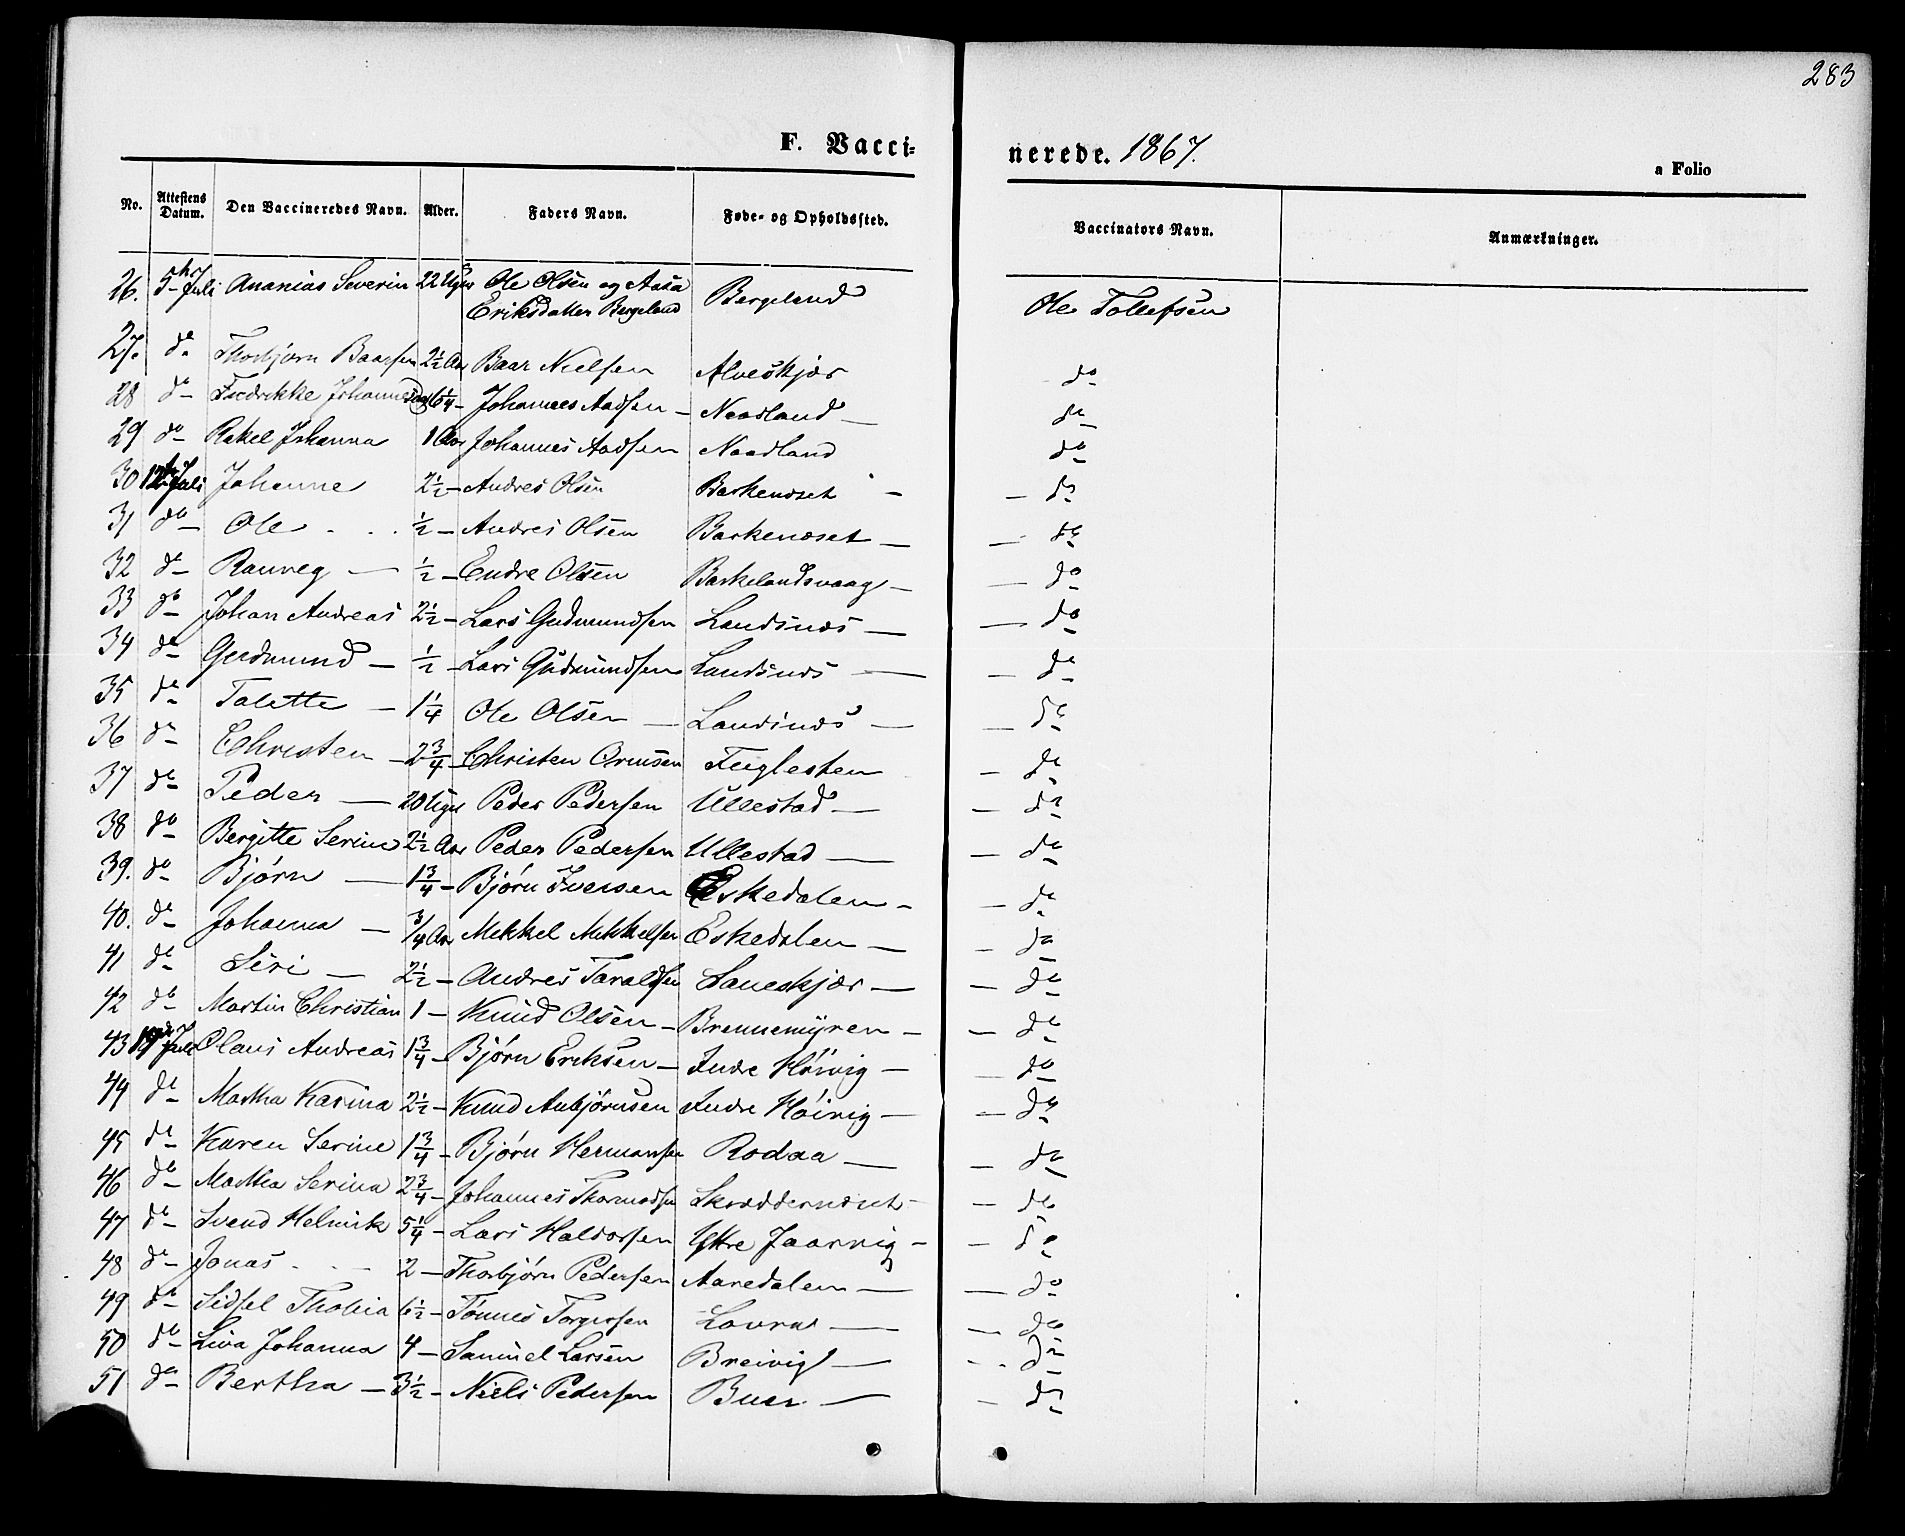 283
F. Vacci-
nerede. 1867.
a Folio
No. Attestens Datum. Den Vaccineredes Navn. Alder. Faders Navn. Føde- og Opholdssted. Vaccinators Navn. Anmærkninger.
26. 5te Juli Ananias Severin 22 Uger Ole Olsen og Aasa Bergeland Ole Tollefsen
Eriksdatter Bergeland
27. do Thorbjørn Baarsen 2½ Aar Baar Nielsen Alveskjær do
28 do Fredrikke Johannesdat 6¼ – Johannes Aadsen – Naadland – do
29 do Rakel Johanna 1 Aar Johannes Aadsen Naadland do
30 12te Juli Johanne 2½ – Andres Olsen Barkenæset – – do
31 do – Ole ½ – Andres Olsen Barkenæset – – do
32 do – Ranveg – ½ – Endre Olsen Barkelandsvaag – – do
33 do – Johan Andreas 2½ – Lars Gudmundsen Landsnæs – – do
34 do – Gudmund – ½ – Lars Gudmundsen Landsnæs – – do
35 do – Talette – 1¼ Ole Olsen – Landsnæs – – do
36 do – Christen – 2¾ – Christen Ormsen Fuglesten – do
37 do – Peder – 20 Uger Peder Pedersen Ullestad – – do
38 do – Bergitte Serine 2½ Aar Peder Pedersen Ullestad – – do
39. do – Bjørn – 1¾ – Bjørn Iversen Eskedalen – – do
40. do – Johanna – ¾ Aar Mikkel Mikkelsen Eskedalen – – do
41 do – Siri – 2½ – Andres Taraldsen Laneskjær – – do
42 do – Martin Christian 1 – Knud Olsen – Brennemyren – – do
43 19de Juli Olaus Andreas 1¾ – Bjørn Eriksen – Indre Høivig – – do
44 do – Martha Karina 2½ – Knud Anbjørnsen Indre Høivig – – do
45 do – Karen Serine 1¾ – Bjørn Hermansen Rodaa – – do
46 do – Martha Serina 2¾ – Johannes Thormodsen Skræddernæset – – do
47 do – Svend Helmik 5¼ – Lars Haldorsen Ytre Jaarvig – – do
48 do – Jonas 2 – Thorbjørn Pedersen Aaredalen – – do
49 do – Sidsel Thobia 6½ – Tønnes Torgersen – do
50 do – Lina Johanna 4 – Samuel Larsen Breivig – – do
51 do – Bertha – 3½ – Niels Pedersen Buer – – do